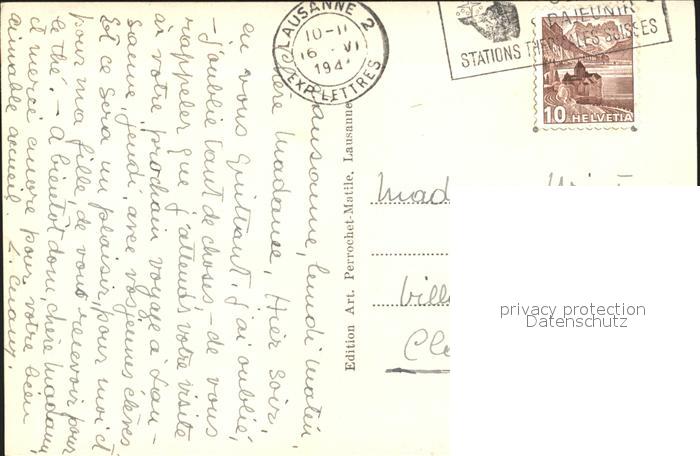 LAUSANNE 2
10-11
16 VI
194
EXP. LETTRES
RAJEUNIR
STATIONS THERMALES SUISSES
10 HELVETIA
Lausanne, lundi matin,
Chère Madame, Hier soir,
en vous quittant, j'ai oublié,
– j'oublie tant de choses, – de vous
rappeler que j'attends votre visite
au votre prochain voyage à Lau-
sanne, jeudi, avec vos jeunes élèves.
Et ce sera un plaisir, pour moi et
pour ma fille, de vous recevoir pour
le thé. – A bientôt donc, chère Madame,
et merci encore pour votre bien
aimable accueil.
Edition Art. Perrochet-Matile, Lausanne
Mad
Vill
Cl
privacy protection
Datenschutz